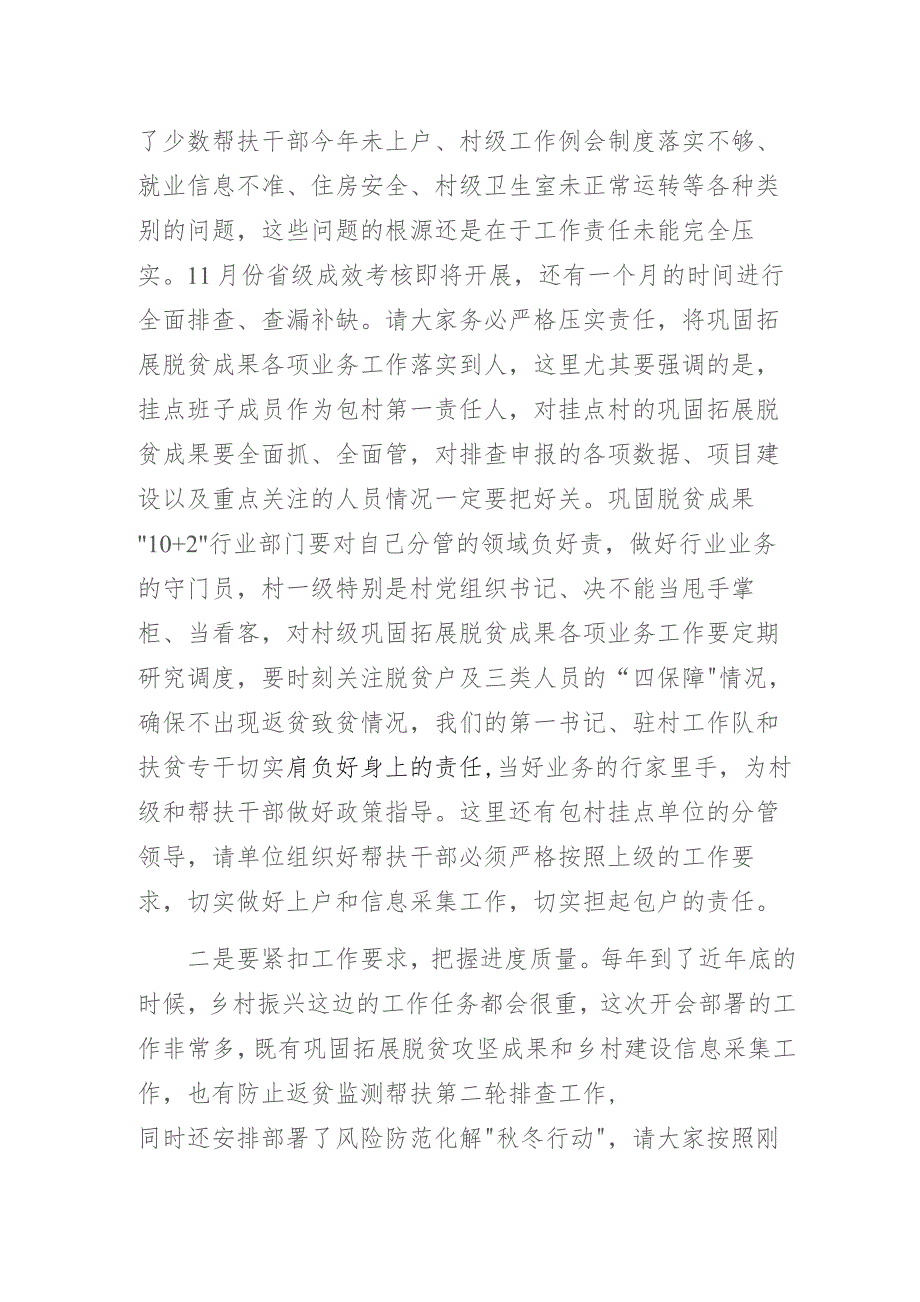 了少数帮扶干部今年未上户、村级工作例会制度落实不够、
就业信息不准、住房安全、村级卫生室未正常运转等各种类
别的问题，这些问题的根源还是在于工作责任未能完全压
实。11月份省级成效考核即将开展，还有一个月的时间进行
全面排查、查漏补缺。请大家务必严格压实责任，将巩固拓
展脱贫成果各项业务工作落实到人，这里尤其要强调的是，
挂点班子成员作为包村第一责任人，对挂点村的巩固拓展脱
贫成果要全面抓、全面管，对排查申报的各项数据、项目建
设以及重点关注的人员情况一定要把好关。巩固脱贫成果
"10+2"行业部门要对自己分管的领域负好责，做好行业业务
的守门员，村一级特别是村党组织书记、决不能当甩手掌
柜、当看客，对村级巩固拓展脱贫成果各项业务工作要定期
研究调度，要时刻关注脱贫户及三类人员的“四保障"情况，
确保不出现返贫致贫情况，我们的第一书记、驻村工作队和
扶贫专干切实肩负好身上的责任,当好业务的行家里手，为村
级和帮扶干部做好政策指导。这里还有包村挂点单位的分管
领导，请单位组织好帮扶干部必须严格按照上级的工作要
求，切实做好上户和信息采集工作，切实担起包户的责任。
二是要紧扣工作要求，把握进度质量。每年到了近年底的
时候，乡村振兴这边的工作任务都会很重，这次开会部署的工
作非常多，既有巩固拓展脱贫攻坚成果和乡村建设信息采集工
作，也有防止返贫监测帮扶第二轮排查工作，
同时还安排部署了风险防范化解"秋冬行动"，请大家按照刚